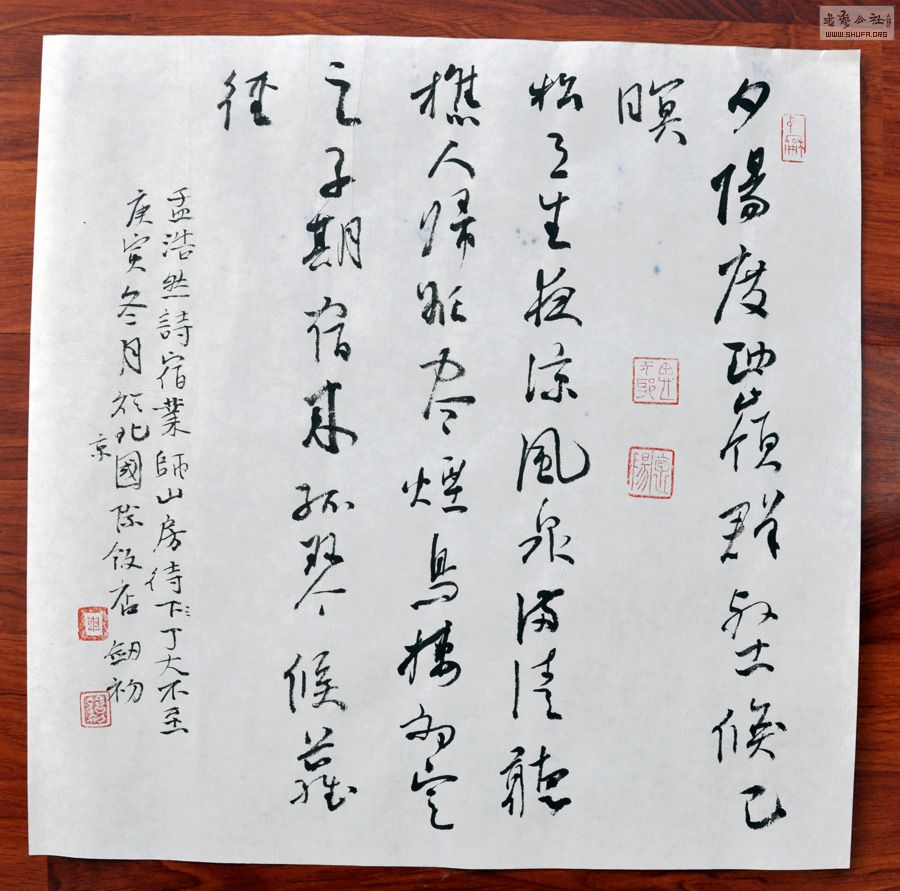 夕陽度西嶺群壑倏已
暝
松月生夜涼風泉滿清聽
樵人歸欲盡煙鳥棲初定
之子期宿來孤琴候蘿
徑
孟浩然詩宿業師山房待丁大不至
庚寅冬月於北國際飯店 劍初
京
書藝公社
WWW.SHUFA.ORG